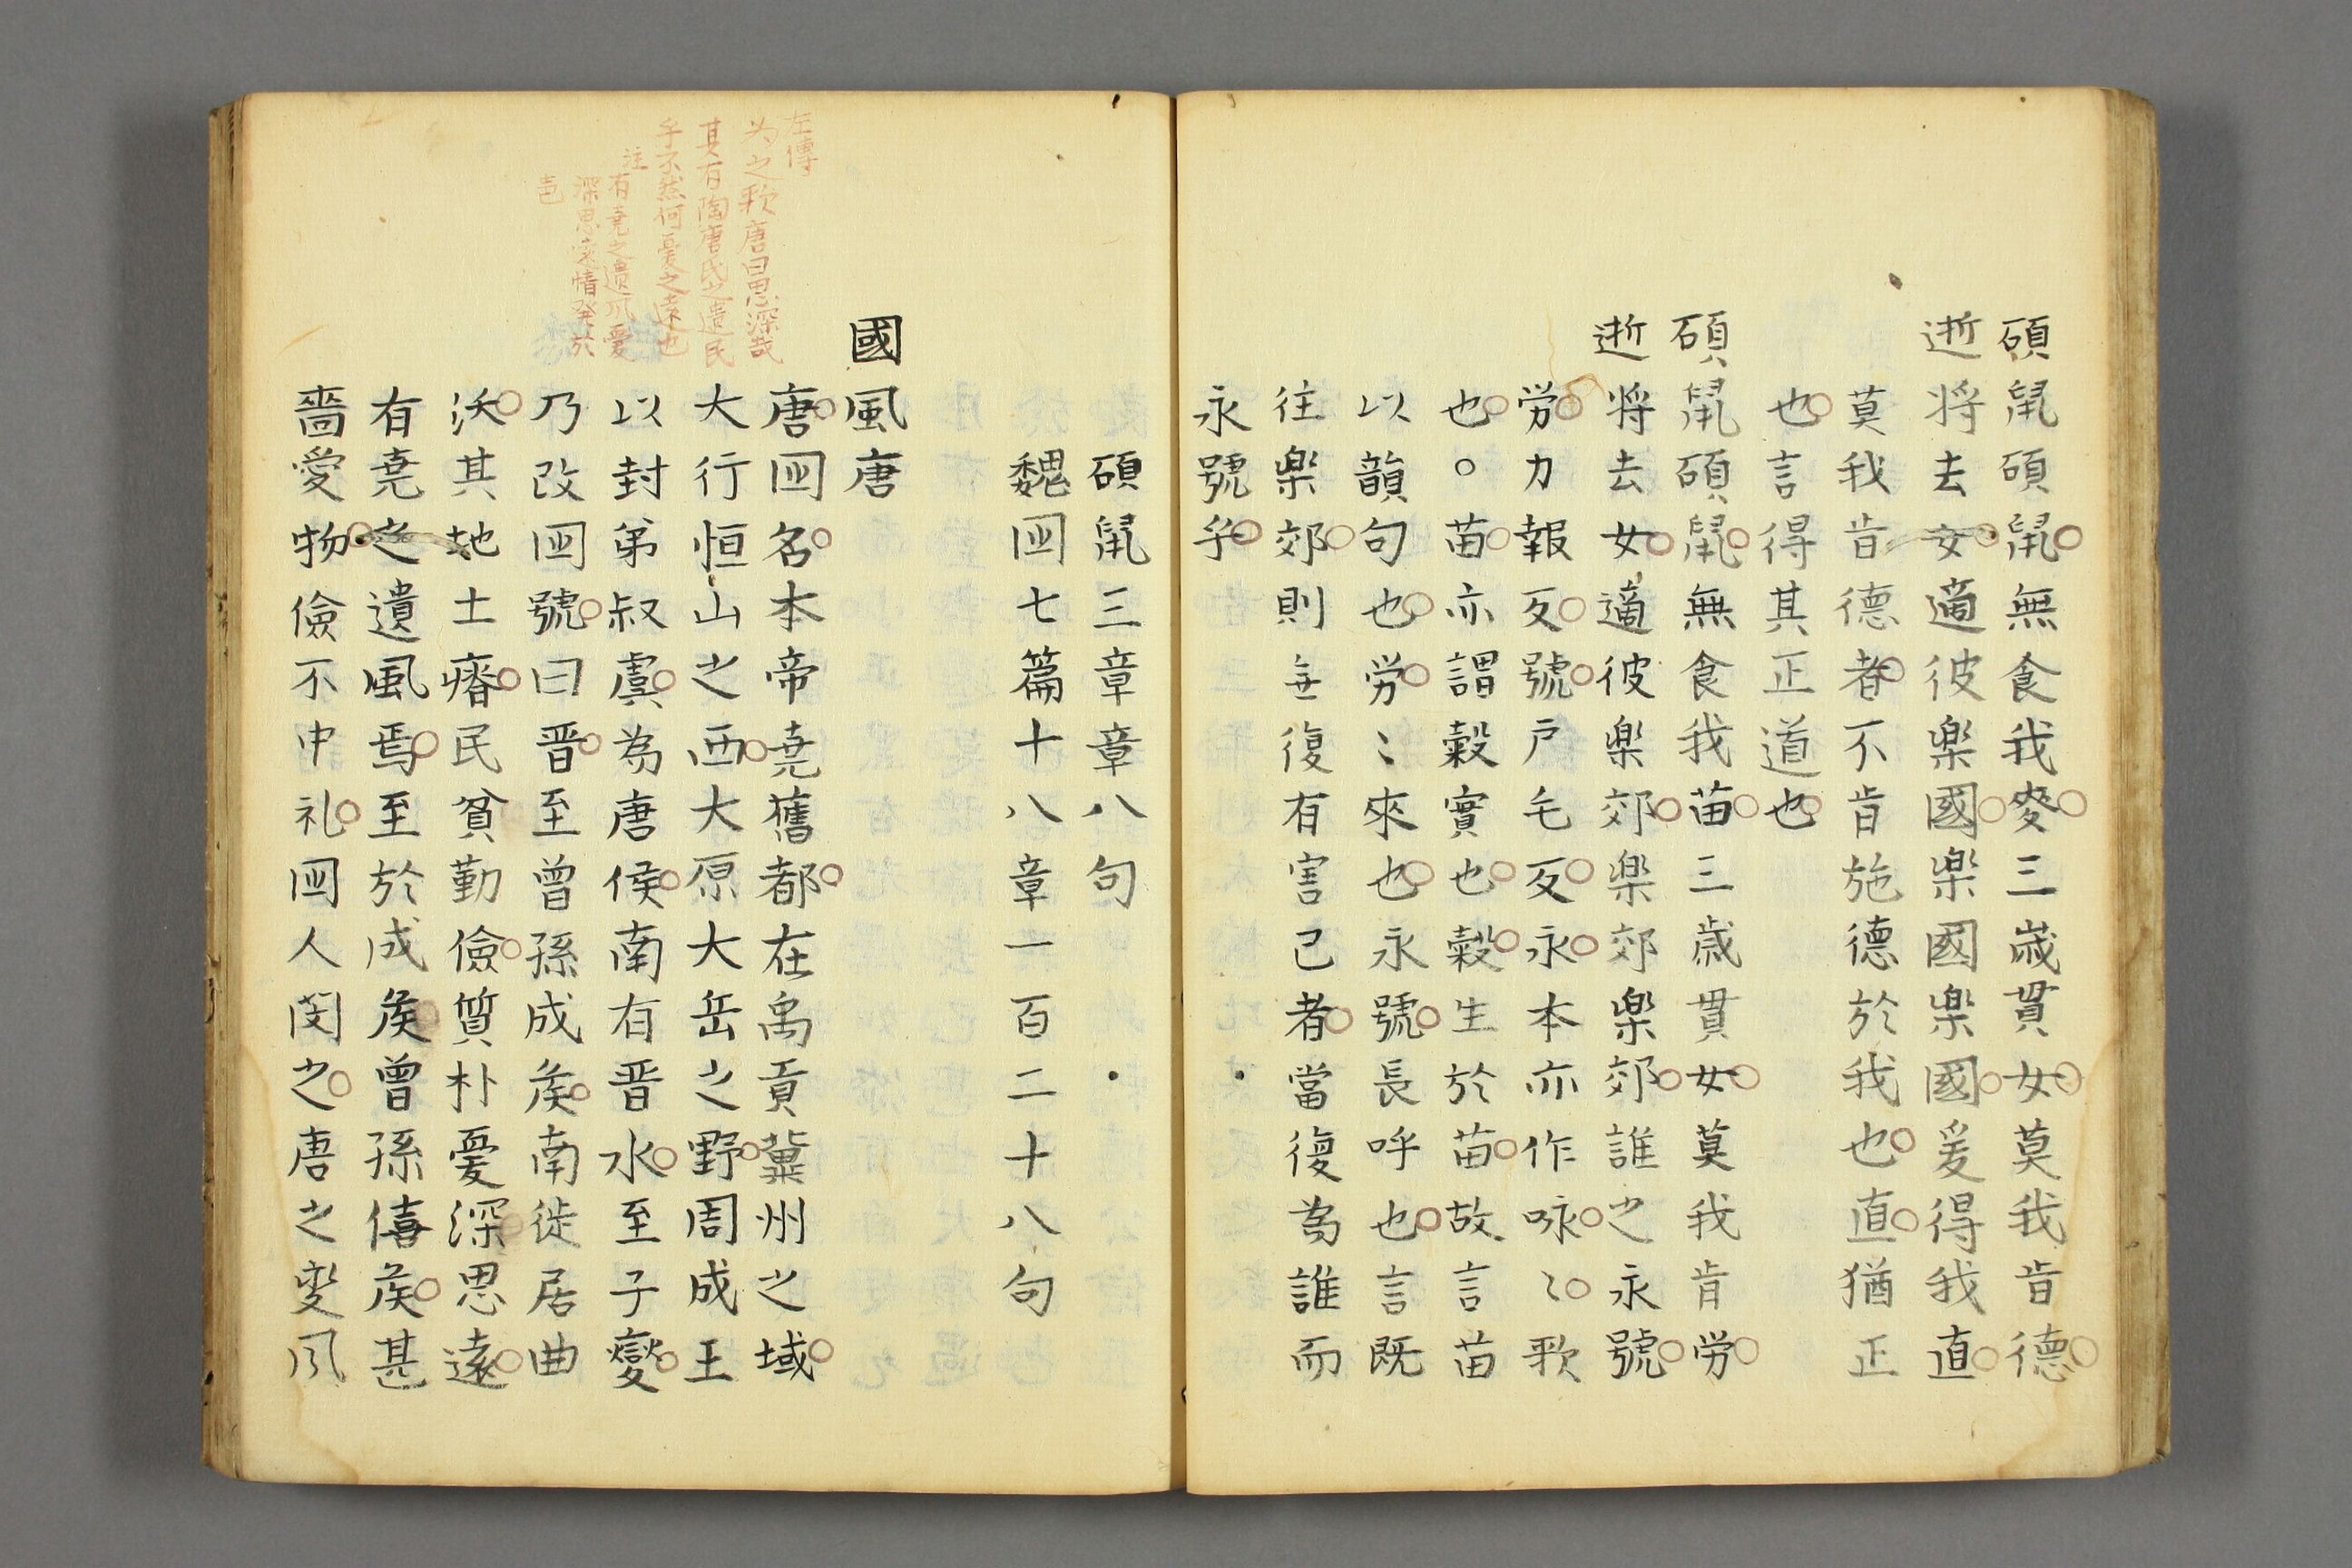 碩鼠碩鼠無食我麥三歳貫女莫我肯德
逝将去女適彼楽國楽國楽國爰得我直
莫我肯德者不肯施德於我也直猶正
也言得其正道也
碩鼠碩鼠無食我苗三歳貫女莫我肯労
逝将去女適彼楽郊楽郊楽郊誰之永號
労力報反號戸毛反永本亦作咏〻歌
也○苗亦謂穀實也穀生於苗故言苗
以韻句也労〻來也永號長呼也言既
往楽郊則無復有害己者當復為誰而
永號乎
碩鼠三章章八句
魏囯七篇十八章一百二十八句
國風唐
唐囯名本帝尭舊都在禹貢冀州之域
大行恒山之西大原大岳之野周成王
以封弟叔虞為唐侯南有晋水至子燮
乃改囯號曰晋至曽孫成矦南徙居曲
沃其地土瘠民貧勤儉質朴憂深思遠
有尭之遺風焉至於成矦曽孫僖矦甚
嗇愛物儉不中礼囯人閔之唐之変風
左傳
为之歌唐曰思深哉
其有陶唐氏之遺民
乎不然何憂之遠也
注有尭之遺風憂
深思遠情發於
声